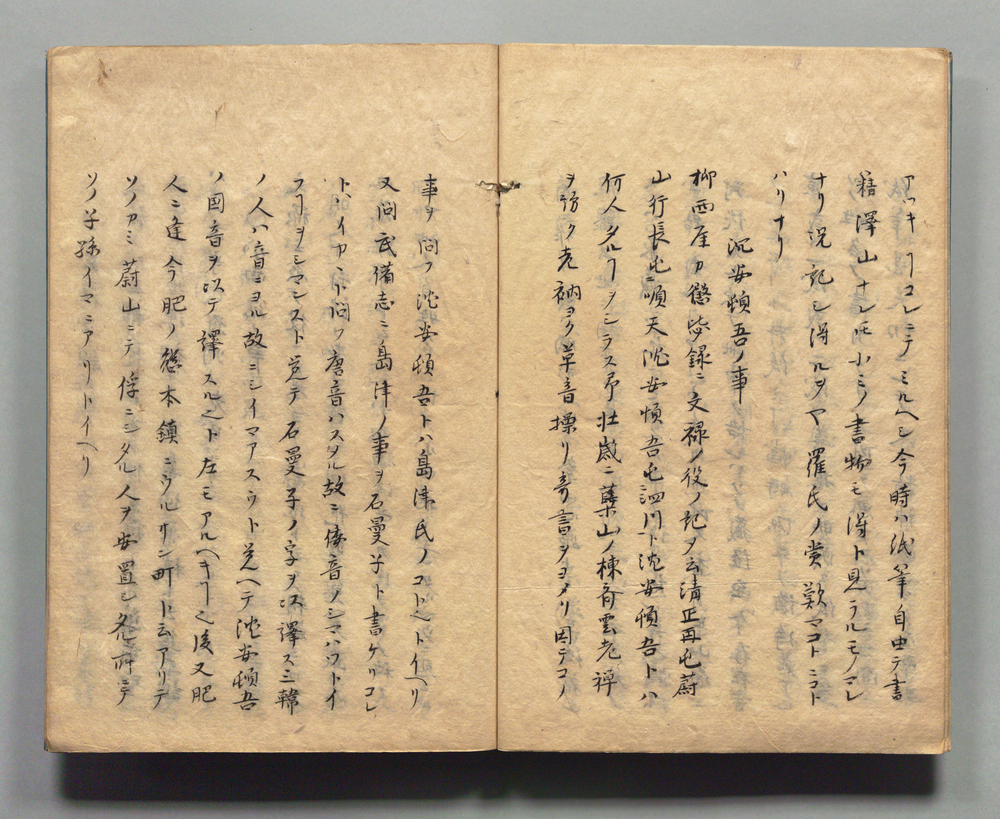 アツキ ヿコレニテミルヘシ今時ハ紙筆自由ニテ書
籍澤山ナレ𪜈小ミノ書物モ得ト見ラルモノマレ
ナリ況記シ得ルヲヤ羅氏ノ賞歎マコトニコト
ハリナリ
沉安頓吾ノ事
柳西厓カ懲毖録ニ文禄ノ役ノ記ヲ云清正再屯蔚
山行長屯順天沈安頓吾屯泗川ト沈安頓吾トハ
何人タルヿヲシラス予壮歳ニ藥山ノ棟斎雲老禅
ヲ訪ク老衲ヨク草音操リ奇書ヲヨメリ因テコノ
事ヲ問フ沈安頓吾トハ島津氏ノコトヘトイヘリ
又問武備志ニ島津ノ事ヲ石曼子ト書ケリコレ
トイカニト問フ唐音ハスタル故ニ倭音ノシマハウトイ
フヿヲシマンスト覚テ石曼子ノ字ヲ以譯ス三韓
ノ人ハ音ニヨル故ニシイマアスウト覚ヘテ沈安頓吾
ノ国音ヲ以テ譯スルヘト左モアルヘキヿヘ後又肥
人ニ逢今肥ノ熊本鎮ニウルサン町ト云アリテ
ソノアミ蔚山ニテ俘ニシタル人ヲ安置シタル所ニテ
ソノ子孫イマニアリトイヘリ